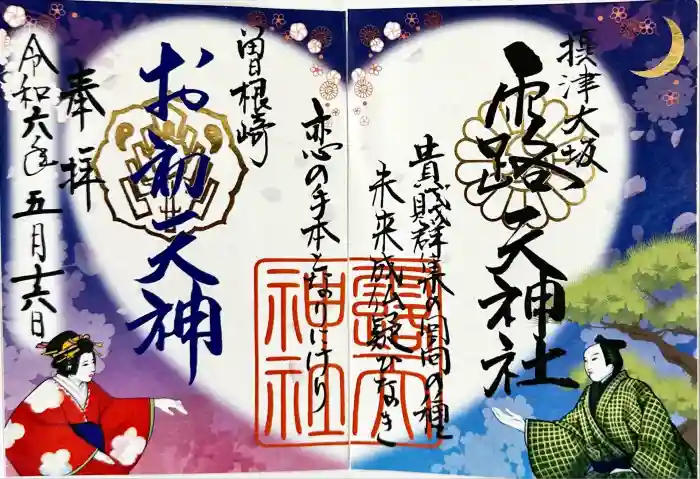 摂津大坂
露天神社
貴賤群集の回向の種
未来成仏疑ひなき
恋の手本となりにけり
曽根崎
お初天神
奉拝
令和六年五月十六日
露天
神社